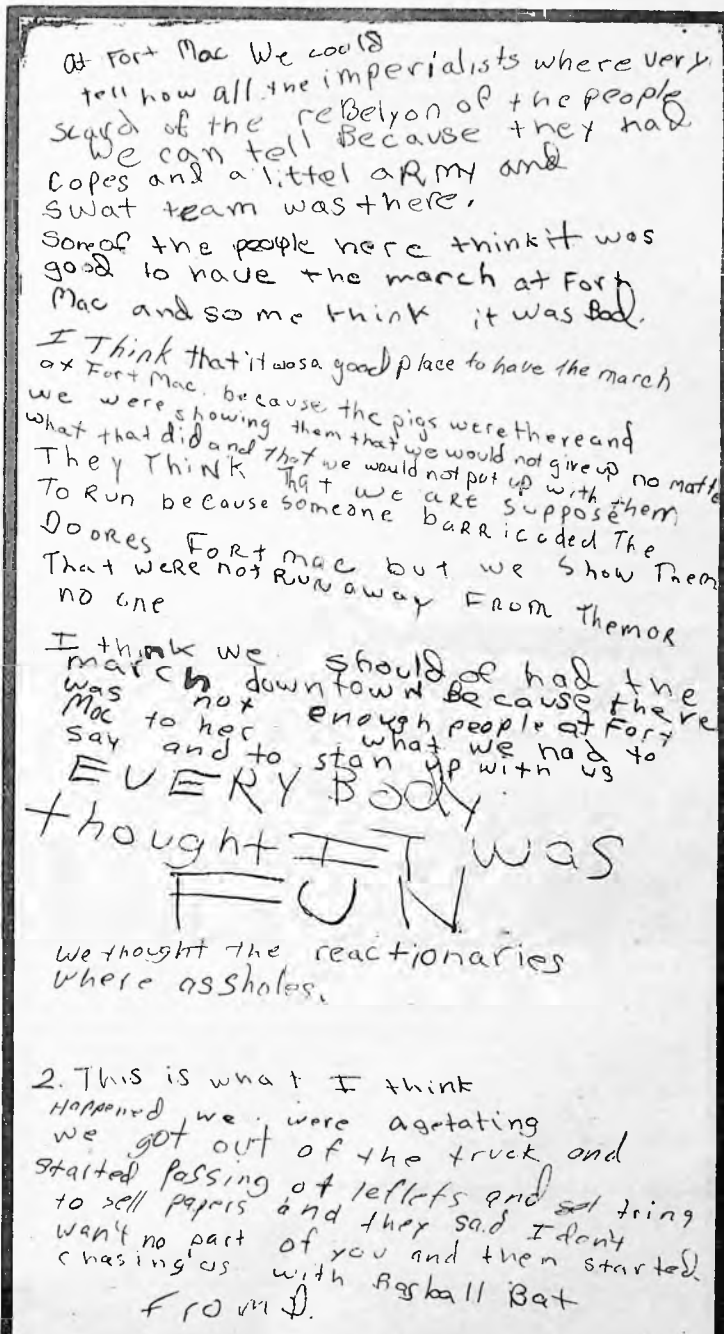 at Fort Mac We could
tell how all the imperialists where very
scard of the reBelyon of the people
We can tell Because they had
Copes and a littel aRMy and
Swat team was there.
Som of the people here think it was
good to have the march at Fort
Mac and some think it was Bad.
I Think that it was a good place to have the march
at Fort Mac. because the pigs were there and
we were showing them that we would not give up no matte
what that did and that we would not put up with them
They Think That we are suppose
To Run because someone baRRicaded The
DooRes FoRt mac but we Show Them
That weRe not Run away FRom Themor
no one
I think we should of had the
march downtown Because there
was not enough people at Fort
Mac to her what we had to
say and to stan up with us
EVERY BODY
thought IT was
FUN
we thought the reactionaries
where assholes.
2. This is what I think
Happened we were agetating
we got out of the truck and
started Passing ot leflets and tring
to sell papers and they sad I don't
wan't no part of you and then started
chasing us with Basball Bat
from D.